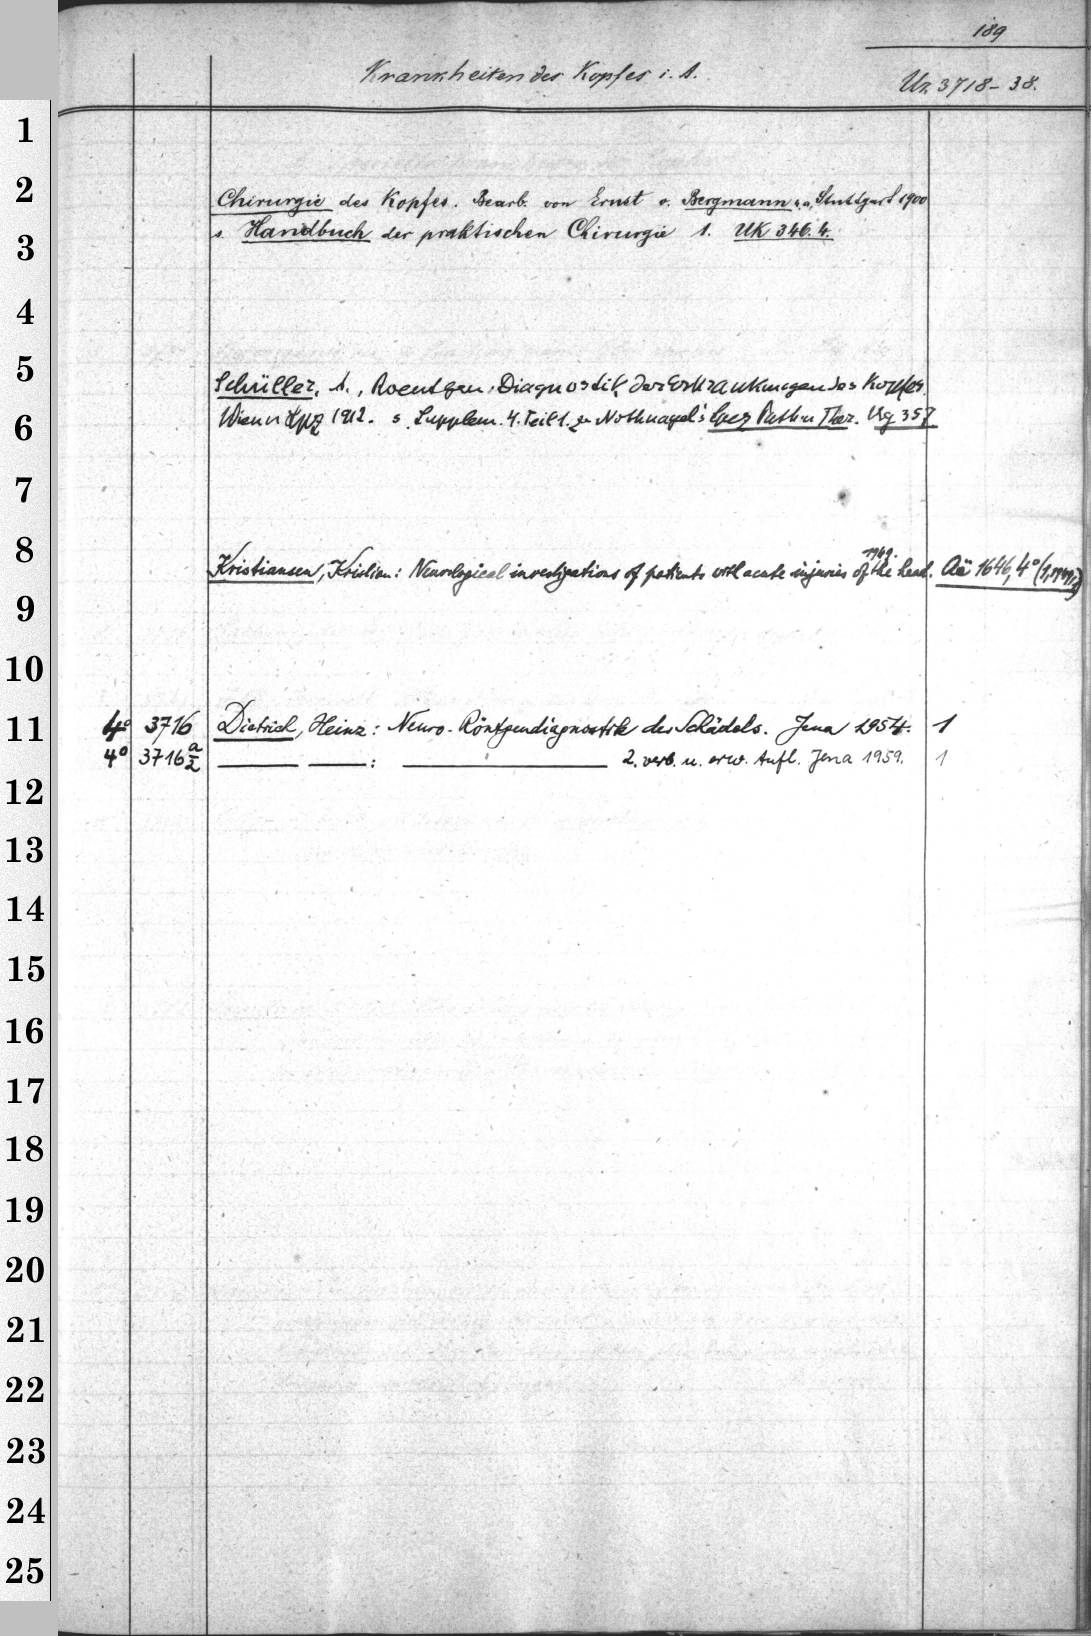 189
Krankheiten des Kopfes i. A.
Uz. 3718-38.
1
2
Chirurgie des Kopfes. Bearb. von Ernst v. Bergmann u. a. Stuttgart 1900
3
s. Handbuch der praktischen Chirurgie 1. UK 346.4.
4
5
Schüller, A., Roentgen-Diagnostik der Erkrankungen des Kopfes.
6
Wien u Lpz 1912. s. Supplem. 4. Teil 1. zu Nothnagel's Spez Path u Ther. Ug 357.
7
8
1949.
Kristiansen, Kristian: Neurological investigations of patients with acute injuries of the head. Aä 1646, 4°
9
10
11
4° 3716 Dietrich, Heinz: Neuro-Röntgendiagnostik des Schädels. Jena 1954. 1
4° 3716 a/2 ——— ———: ——————— 2. verb. u. erw. Aufl. Jena 1959. 1
12
13
14
15
16
17
18
19
20
21
22
23
24
25